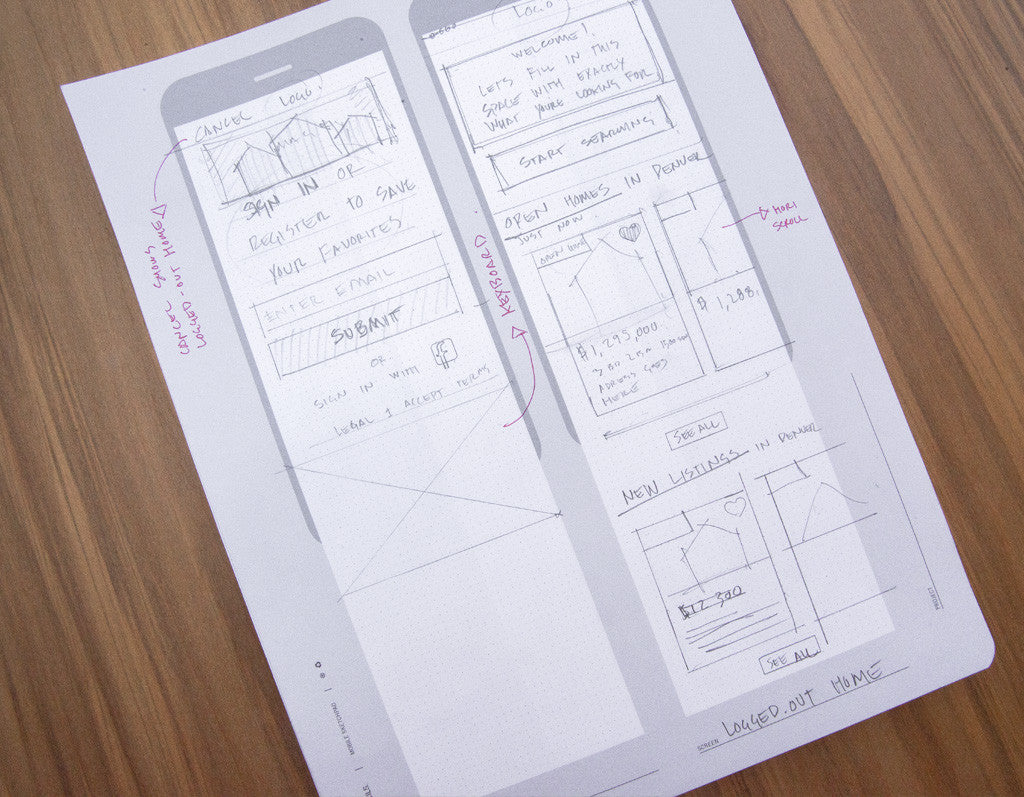 CANCEL LOGO
SIGN IN OR
REGISTER TO SAVE
YOUR FAVORITES
ENTER EMAIL
SUBMIT
OR
SIGN IN WITH f
LEGAL I ACCEPT TERMS
CANCEL SHOWS
LOGGED-OUT HOME
KEYBOARD
LOGO
WELCOME!
LETS FILL IN THIS
SPACE WITH EXACTLY
WHAT YOURE LOOKING FOR
START SEARCHING
OPEN HOMES IN DENVER
JUST NOW
OPEN HOUSE
$1,295,000
3 BD 2 BA
ADDRESS GOES
HERE
$1,288,
HORI
SCROLL
SEE ALL
NEW LISTINGS IN DENVER
SEE ALL
PROJECT
SCREEN LOGGED-OUT HOME
MOBILE